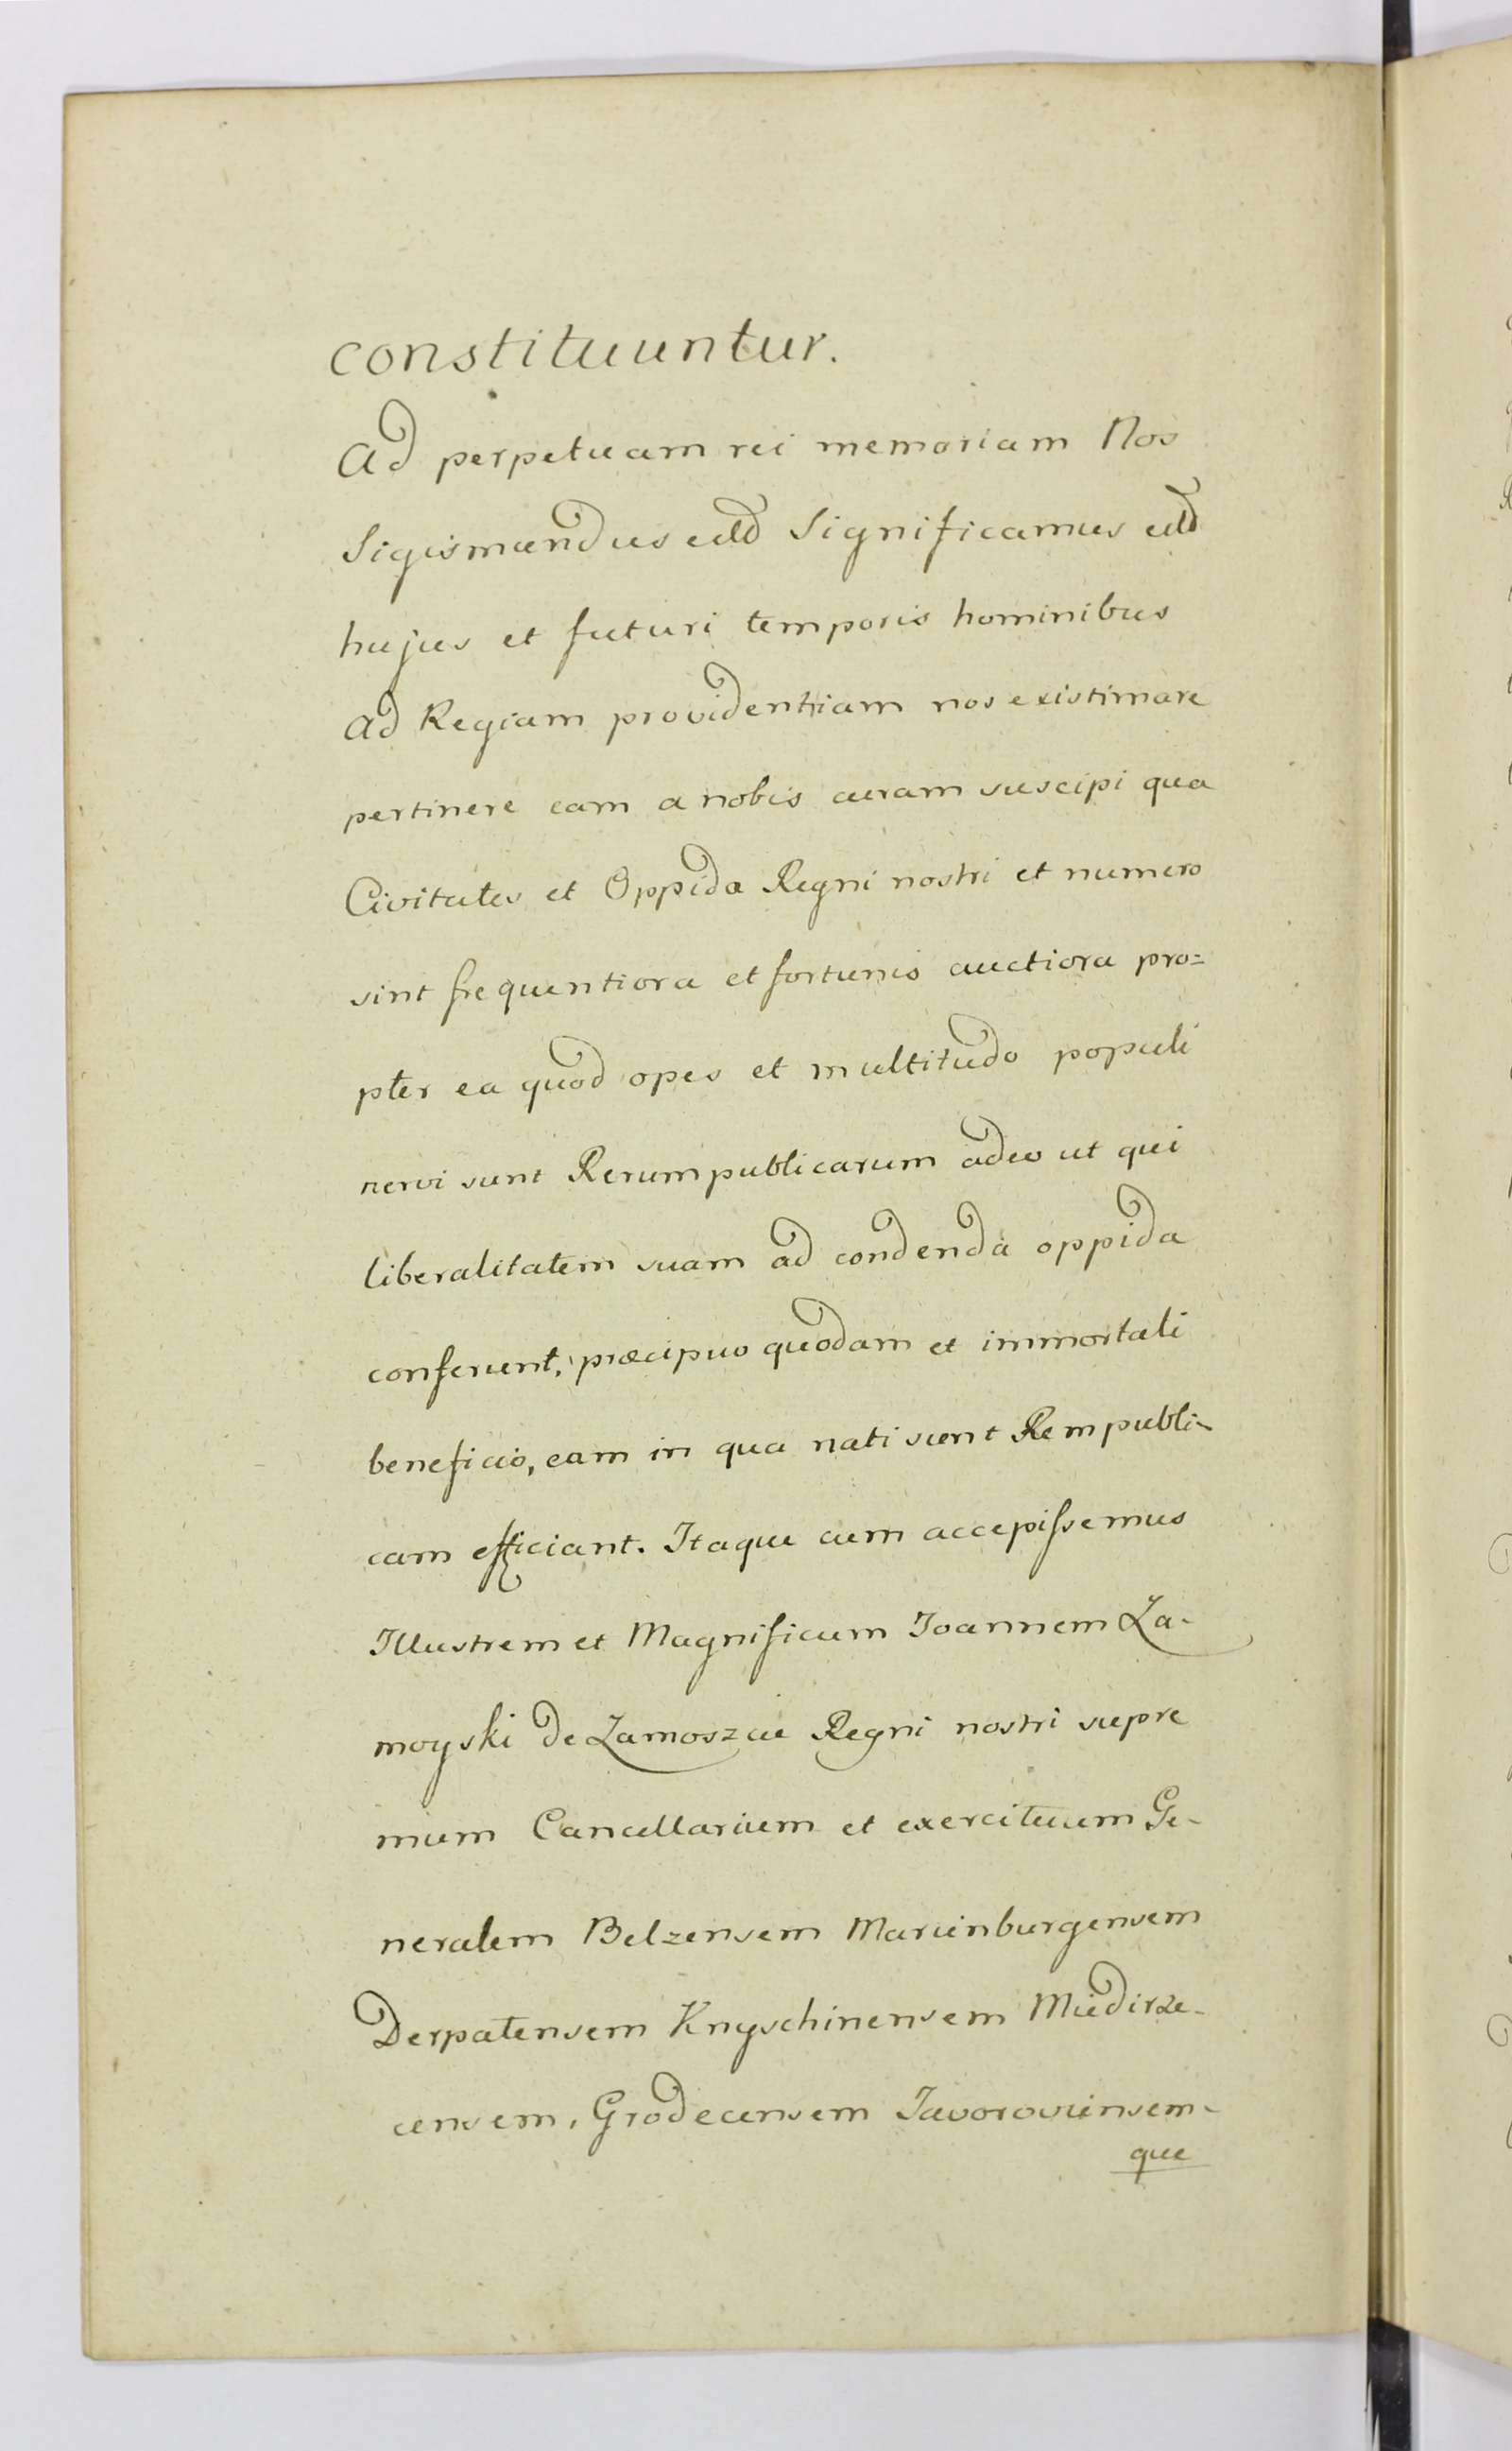 constituuntur.
Ad perpetuam rei memoriam Nos
Sigismundus Significamus
hujus et futuri temporis hominibus
ad Regiam providentiam nos existimare
pertinere eam a nobis curam suscipi qua
Civitates et Oppida Regni nostri et numero
sint frequentiora et fortunis auctiora pro=
pter ea quod opes et multitudo populi
nervi sunt Rerumpublicarum adeo ut qui
liberalitatem suam ad condenda oppida
conferunt, præcipuo quodam et immortali
beneficio, eam in qua nati sunt Rempubli-
cam efficiant. Itaque cum accepissemus
Illustrem et Magnificum Joannem Za-
moyski de Zamoszcie Regni nostri supre
mum Cancellarium et exercituum Ge-
neralem Belzensem Marienburgensem
Derpatensem Knyschinensem Miedirze-
censem, Grodecensem Javoroviensem-
que